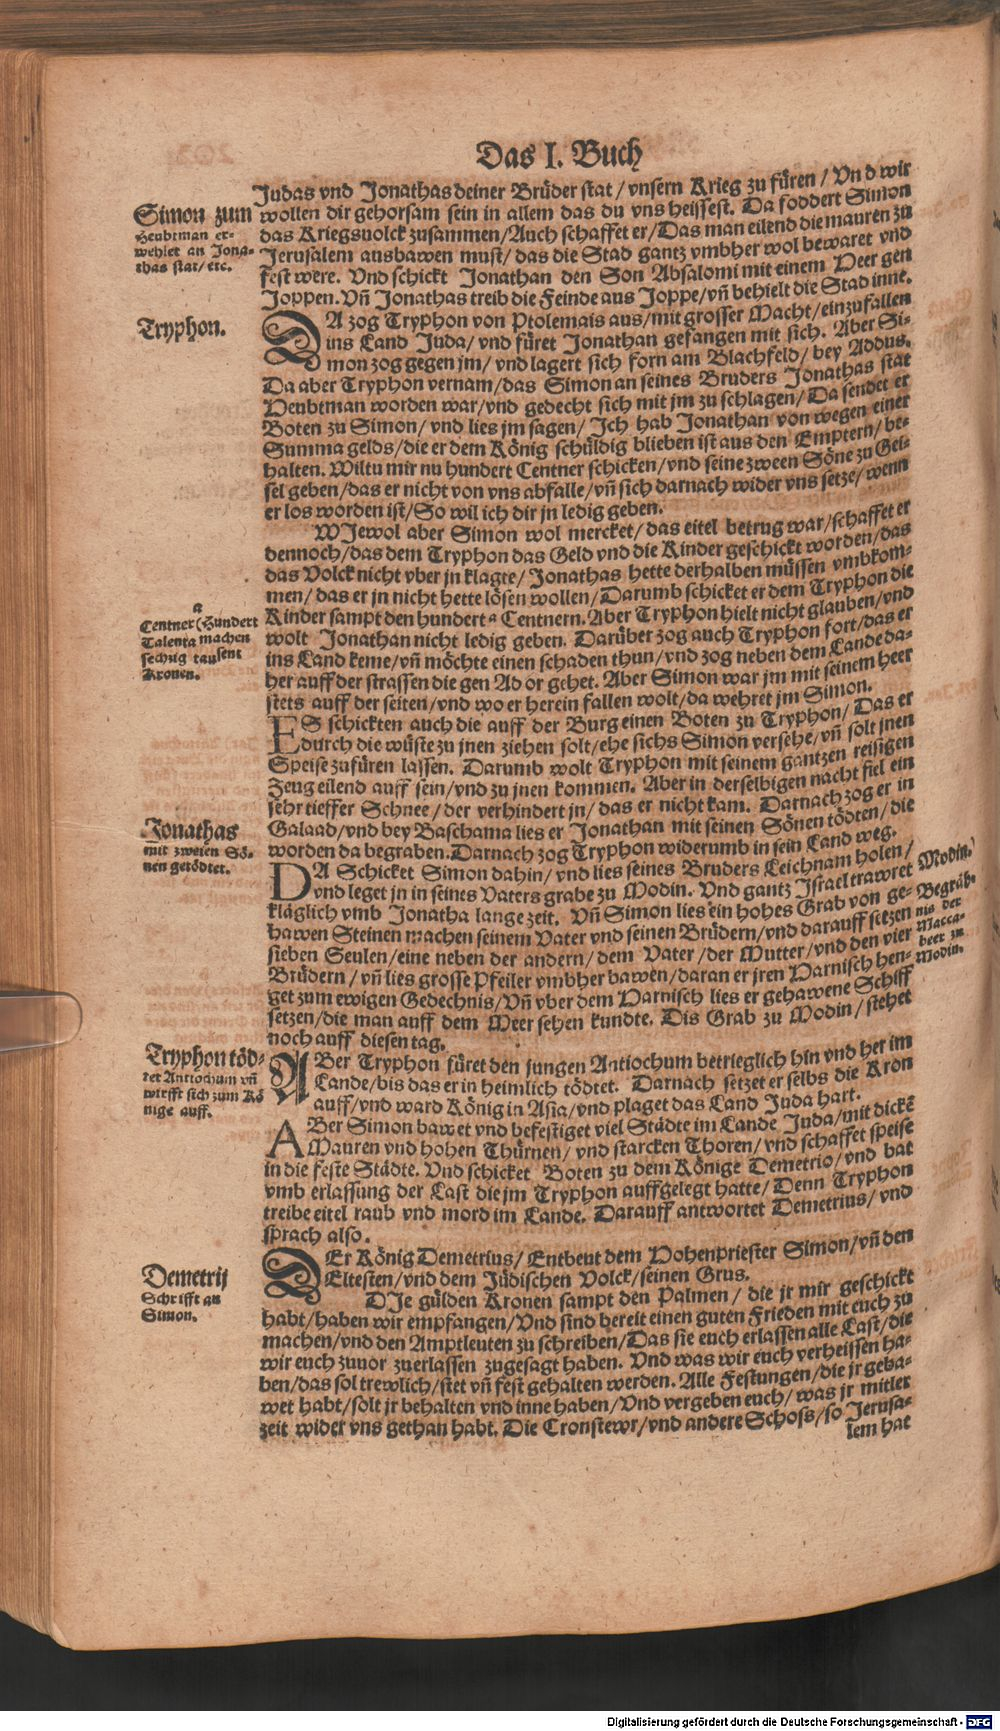 Das I. Buch
Judas vnd Jonathas deiner Brüder stat / vnsern Krieg zu füren / Vnd wir
wollen dir gehorsam sein in allem das du vns heissest. Da foddert Simon
das Kriegsuolck zusammen / Auch schaffet er / Das man eilend die mauren zu
Jerusalem ausbawen must / das die Stad gantz vmbher wol bewaret vnd
fest were. Vnd schickt Jonathan den Son Absalomi mit einem Heer gen
Joppen. Vñ Jonathas treib die Feinde aus Joppe / vñ behielt die Stad inne.
Simon zum
Heubtman er-
wehlet an Jona-
thas stat / etc.
Tryphon.
DA zog Tryphon von Ptolemais aus / mit grosser Macht / einzufallen
ins Land Juda / vnd füret Jonathan gefangen mit sich. Aber Si-
mon zog gegen jm / vnd lagert sich forn am Blachfeld / bey Addus.
Da aber Tryphon vernam / das Simon an seines Bruders Jonathas stat
Heubtman worden war / vnd gedecht sich mit jm zu schlagen / Da sendet er
Boten zu Simon / vnd lies jm sagen / Jch hab Jonathan von wegen einer
Summa gelds / die er dem König schüldig blieben ist aus den Emptern / be-
halten. Wiltu mir nu hundert Centner schicken / vnd seine zween Söne zu Gei-
sel geben / das er nicht von vns abfalle / vñ sich darnach wider vns setze / wenn
er los worden ist / So wil ich dir jn ledig geben.
WJewol aber Simon wol mercket / das eitel betrug war / schaffet er
dennoch / das dem Tryphon das Geld vnd die Kinder geschickt worden / das
das Volck nicht vber jn klagte / Jonathas hette derhalben müssen vmbkom-
men / das er jn nicht hette lösen wollen / Darumb schicket er dem Tryphon die
Kinder sampt den hundert a Centnern. Aber Tryphon hielt nicht glauben / vnd
wolt Jonathan nicht ledig geben. Darüber zog auch Tryphon fort / das er
ins Land keme / vñ möchte einen schaden thun / vnd zog neben dem Lande da-
her auff der strassen die gen Ador gehet. Aber Simon war jm mit seinem heer
stets auff der seiten / vnd wo er herein fallen wolt / da wehret jm Simon.
a
Centner (Hundert
Talenta machen
sechzig tausent
Kronen.
ES schickten auch die auff der Burg einen Boten zu Tryphon / Das er
durch die wüste zu jnen ziehen solt / ehe sichs Simon versehe / vñ solt jnen
Speise zufüren lassen. Darumb wolt Tryphon mit seinem gantzen reisigen
Zeug eilend auff sein / vnd zu jnen kommen. Aber in derselbigen nacht fiel ein
sehr tieffer Schnee / der verhindert jn / das er nicht kam. Darnach zog er in
Galaad / vnd bey Baschama lies er Jonathan mit seinen Sönen tödten / die
worden da begraben. Darnach zog Tryphon widerumb in sein Land weg.
Jonathas
mit zweien Sö-
nen getödtet.
DA Schicket Simon dahin / vnd lies seines Bruders Leichnam holen /
vnd leget jn in seines Vaters grabe zu Modin. Vnd gantz Jsrael trawret
kläglich vmb Jonatha lange zeit. Vñ Simon lies ein hohes Grab von ge-
hawen Steinen machen seinem Vater vnd seinen Brüdern / vnd darauff setzen
sieben Seulen / eine neben der andern / dem Vater / der Mutter / vnd den vier
Brüdern / vñ lies grosse Pfeiler vmbher bawen / daran er jren Harnisch hen-
get zum ewigen Gedechnis / Vñ vber dem Harnisch lies er gehawene Schiff
setzen / die man auff dem Meer sehen kundte. Dis Grab zu Modin / stehet
noch auff diesen tag.
Modin.
Begräb-
nis der
Macca-
beer zu
Modin.
Tryphon töd-
tet Antiochum vñ
wirfft sich zum Kö
nige auff.
ABer Tryphon füret den jungen Antiochum betrieglich hin vnd her im
Lande / bis das er in heimlich tödtet. Darnach setzet er selbs die Kron
auff / vnd ward König in Asia / vnd plaget das Land Juda hart.
ABer Simon bawet vnd befestiget viel Städte im Lande Juda / mit dickẽ
Mauren vnd hohen Thürnen / vnd starcken Thoren / vnd schaffet speise
in die feste Städte. Vnd schicket Boten zu dem Könige Demetrio / vnd bat
vmb erlassung der Last die jm Tryphon auffgelegt hatte / Denn Tryphon
treibe eitel raub vnd mord im Lande. Darauff antwortet Demetrius / vnd
sprach also.
Demetrij
Schrifft an
Simon.
DEr König Demetrius / Entbeut dem Hohenpriester Simon / vñ den
Eltesten / vnd dem Jüdischen Volck / seinen Grus.
DJe gülden Kronen sampt den Palmen / die jr mir geschickt
habt / haben wir empfangen / Vnd sind bereit einen guten Frieden mit euch zu
machen / vnd den Amptleuten zu schreiben / Das sie euch erlassen alle Last / die
wir euch zuuor zuerlassen zugesagt haben. Vnd was wir euch verheissen ha-
ben / das sol trewlich / stet vñ fest gehalten werden. Alle Festungen / die jr geba-
wet habt / solt jr behalten vnd inne haben / Vnd vergeben euch / was jr mitler
zeit wider vns gethan habt. Die Cronstewr / vnd andere Schoss / so Jerusa-
lem hat
Digitalisierung gefördert durch die Deutsche Forschungsgemeinschaft - DFG